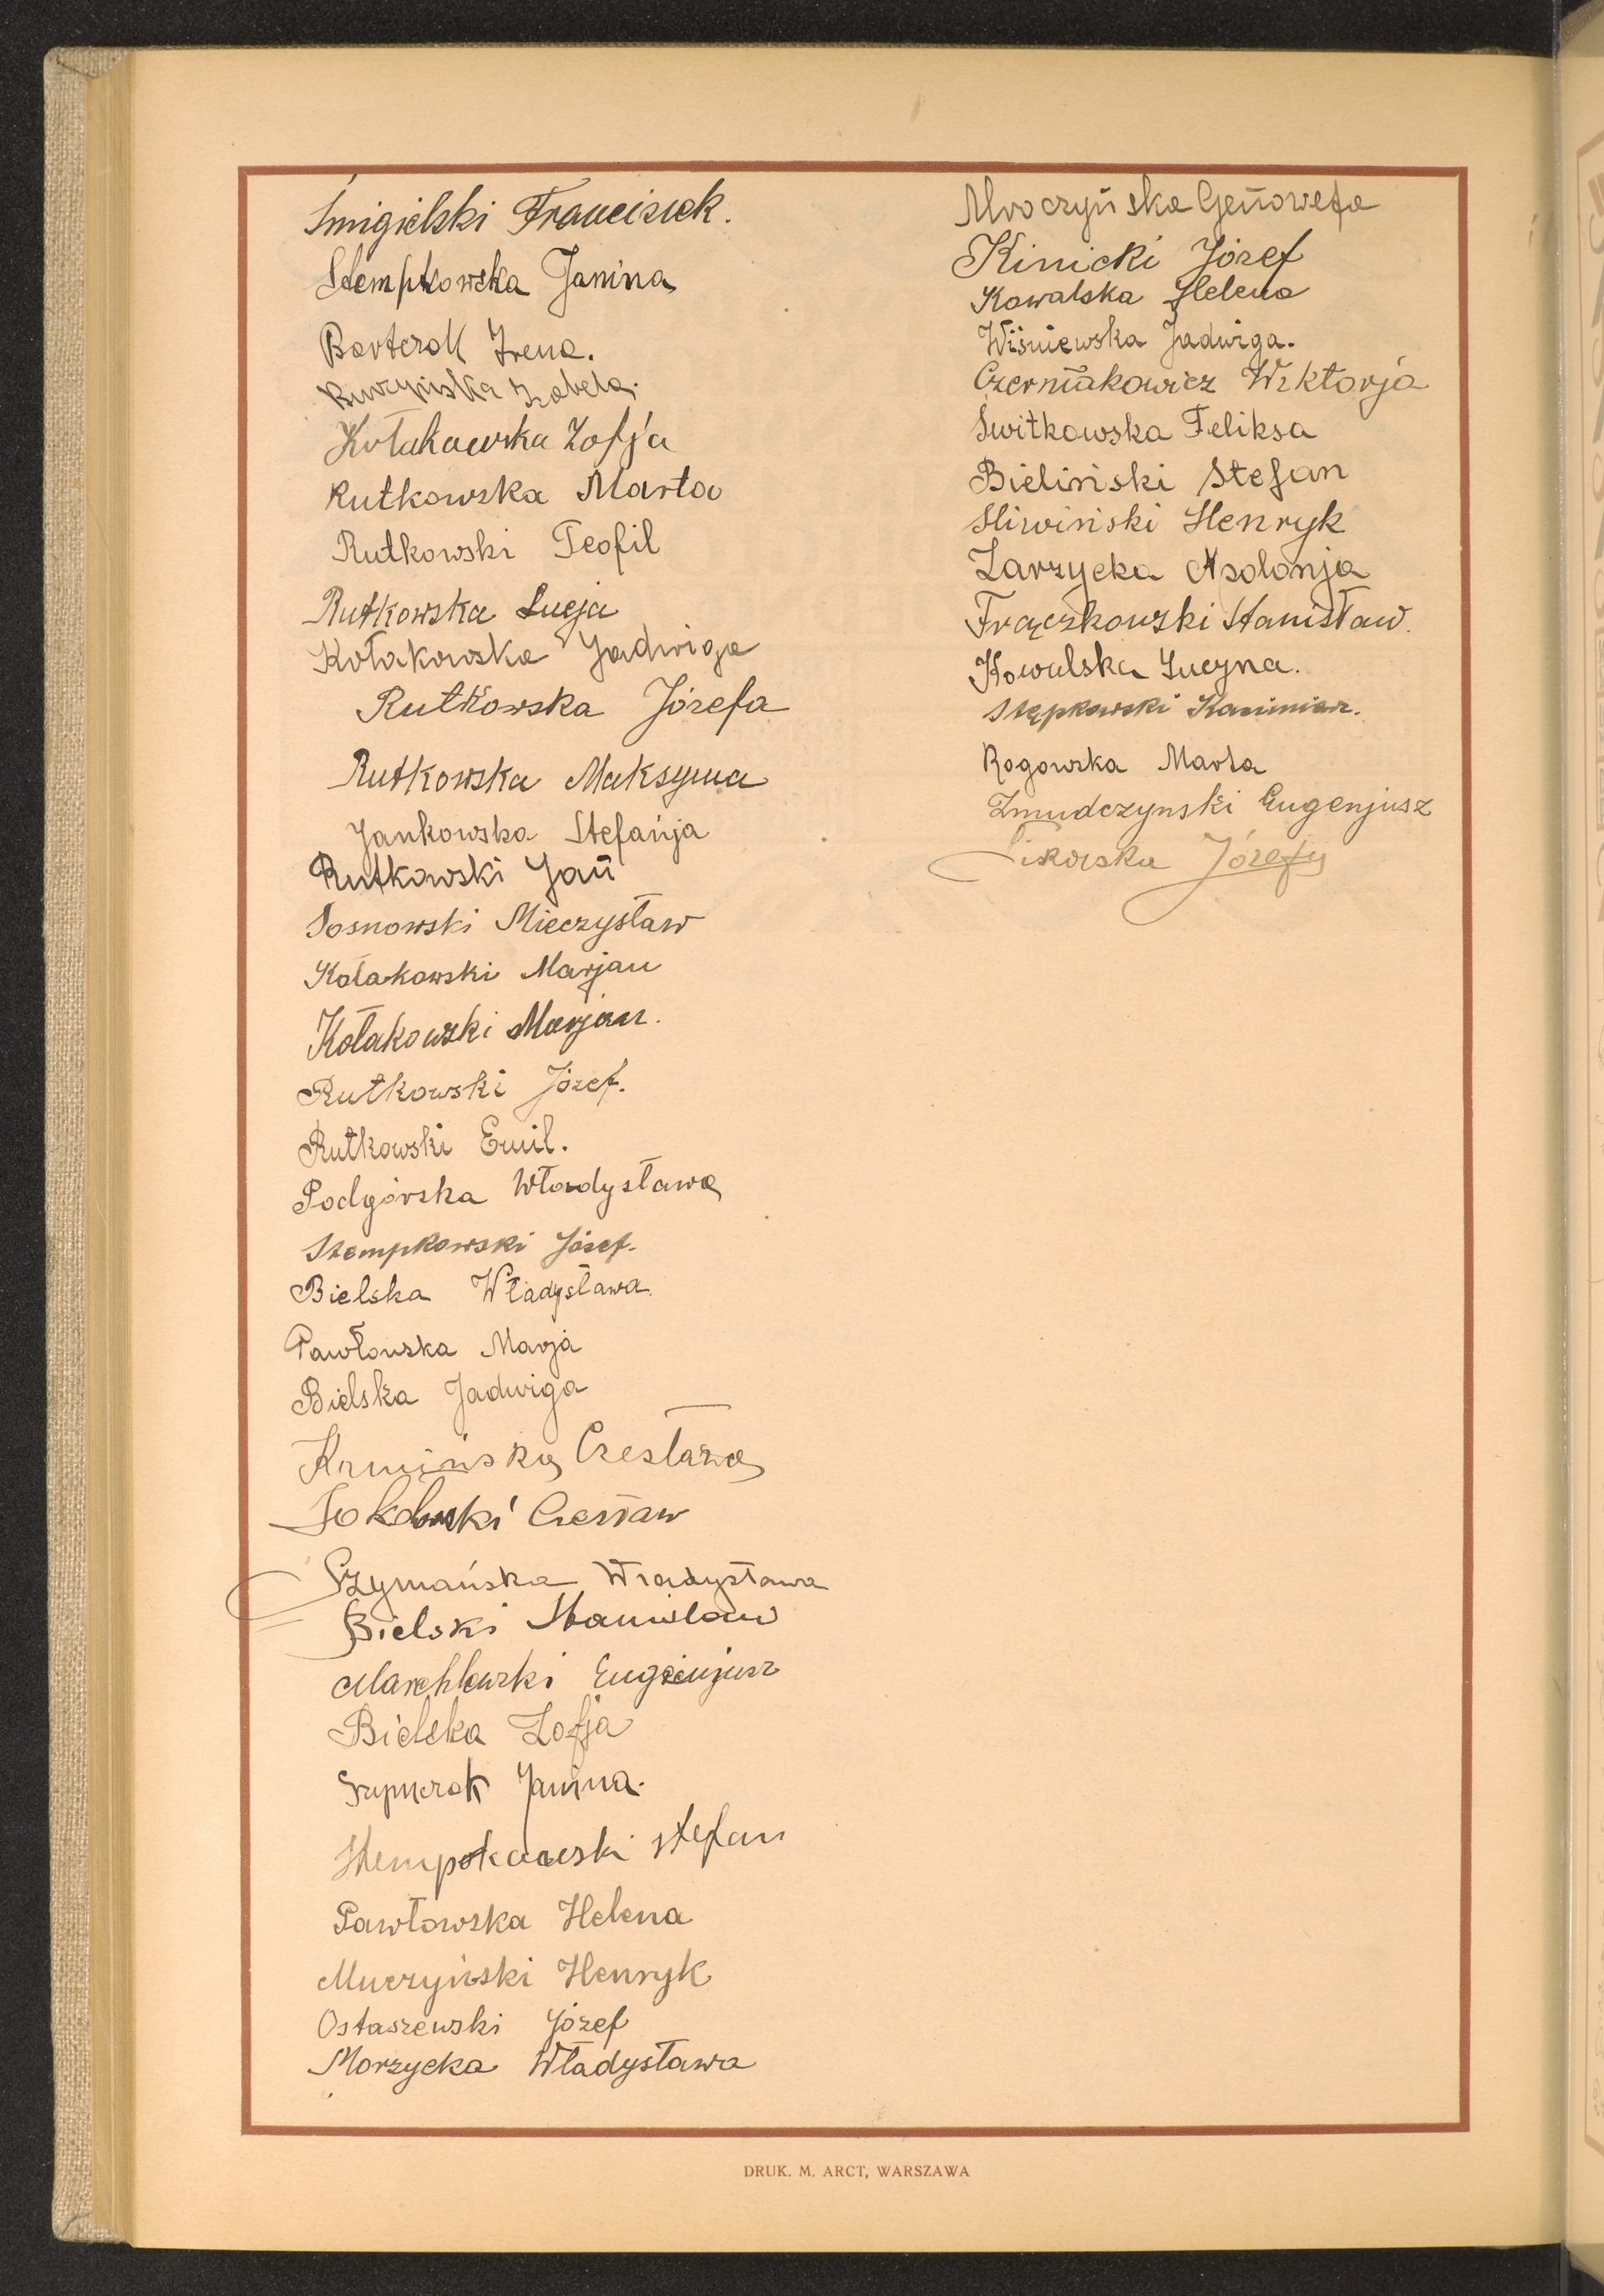 Śmigielski Franciszek.
Stempkowska Janina
Irena.
Izabela.
Kołakowska Zofja
Rutkowska Marta
Rutkowski Teofil
Rutkowska Lucja
Kołakowska Jadwiga
Rutkowska Józefa
Rutkowska Maksyma
Jankowska Stefanja
Rutkowski Jan
Sosnowski Mieczysław
Kołakowski Marjan
Kołakowski Marjan.
Rutkowski Józef.
Rutkowski Emil.
Podgórska Władysława
Stempkowski Józef.
Bielska Władysława.
Pawłowska Marja
Bielska Jadwiga
Czesława
Czesław
Szymańska Władysława
Bielski Stanisław
Marchlewski Eugienjusz
Bielska Zofja
Janina.
Stempokowski Stefan
Pawłowska Helena
Muczyński Henryk
Ostaszewski Józef
Morzycka Władysława
Mroczyńska Genowefa
Kinicki Józef
Kowalska Helena
Wiśniewska Jadwiga.
Czerniakowicz Wiktorja
Świtkowska Feliksa
Bieliński Stefan
Śliwiński Henryk
Zarzycka Apolonja
Frączkowski Stanisław.
Kowalska Lucyna.
Stępkowski Kazimierz.
Rogowska Marta
Zmudczynski Eugenjusz
Sikorska Józefa
DRUK. M. ARCT, WARSZAWA